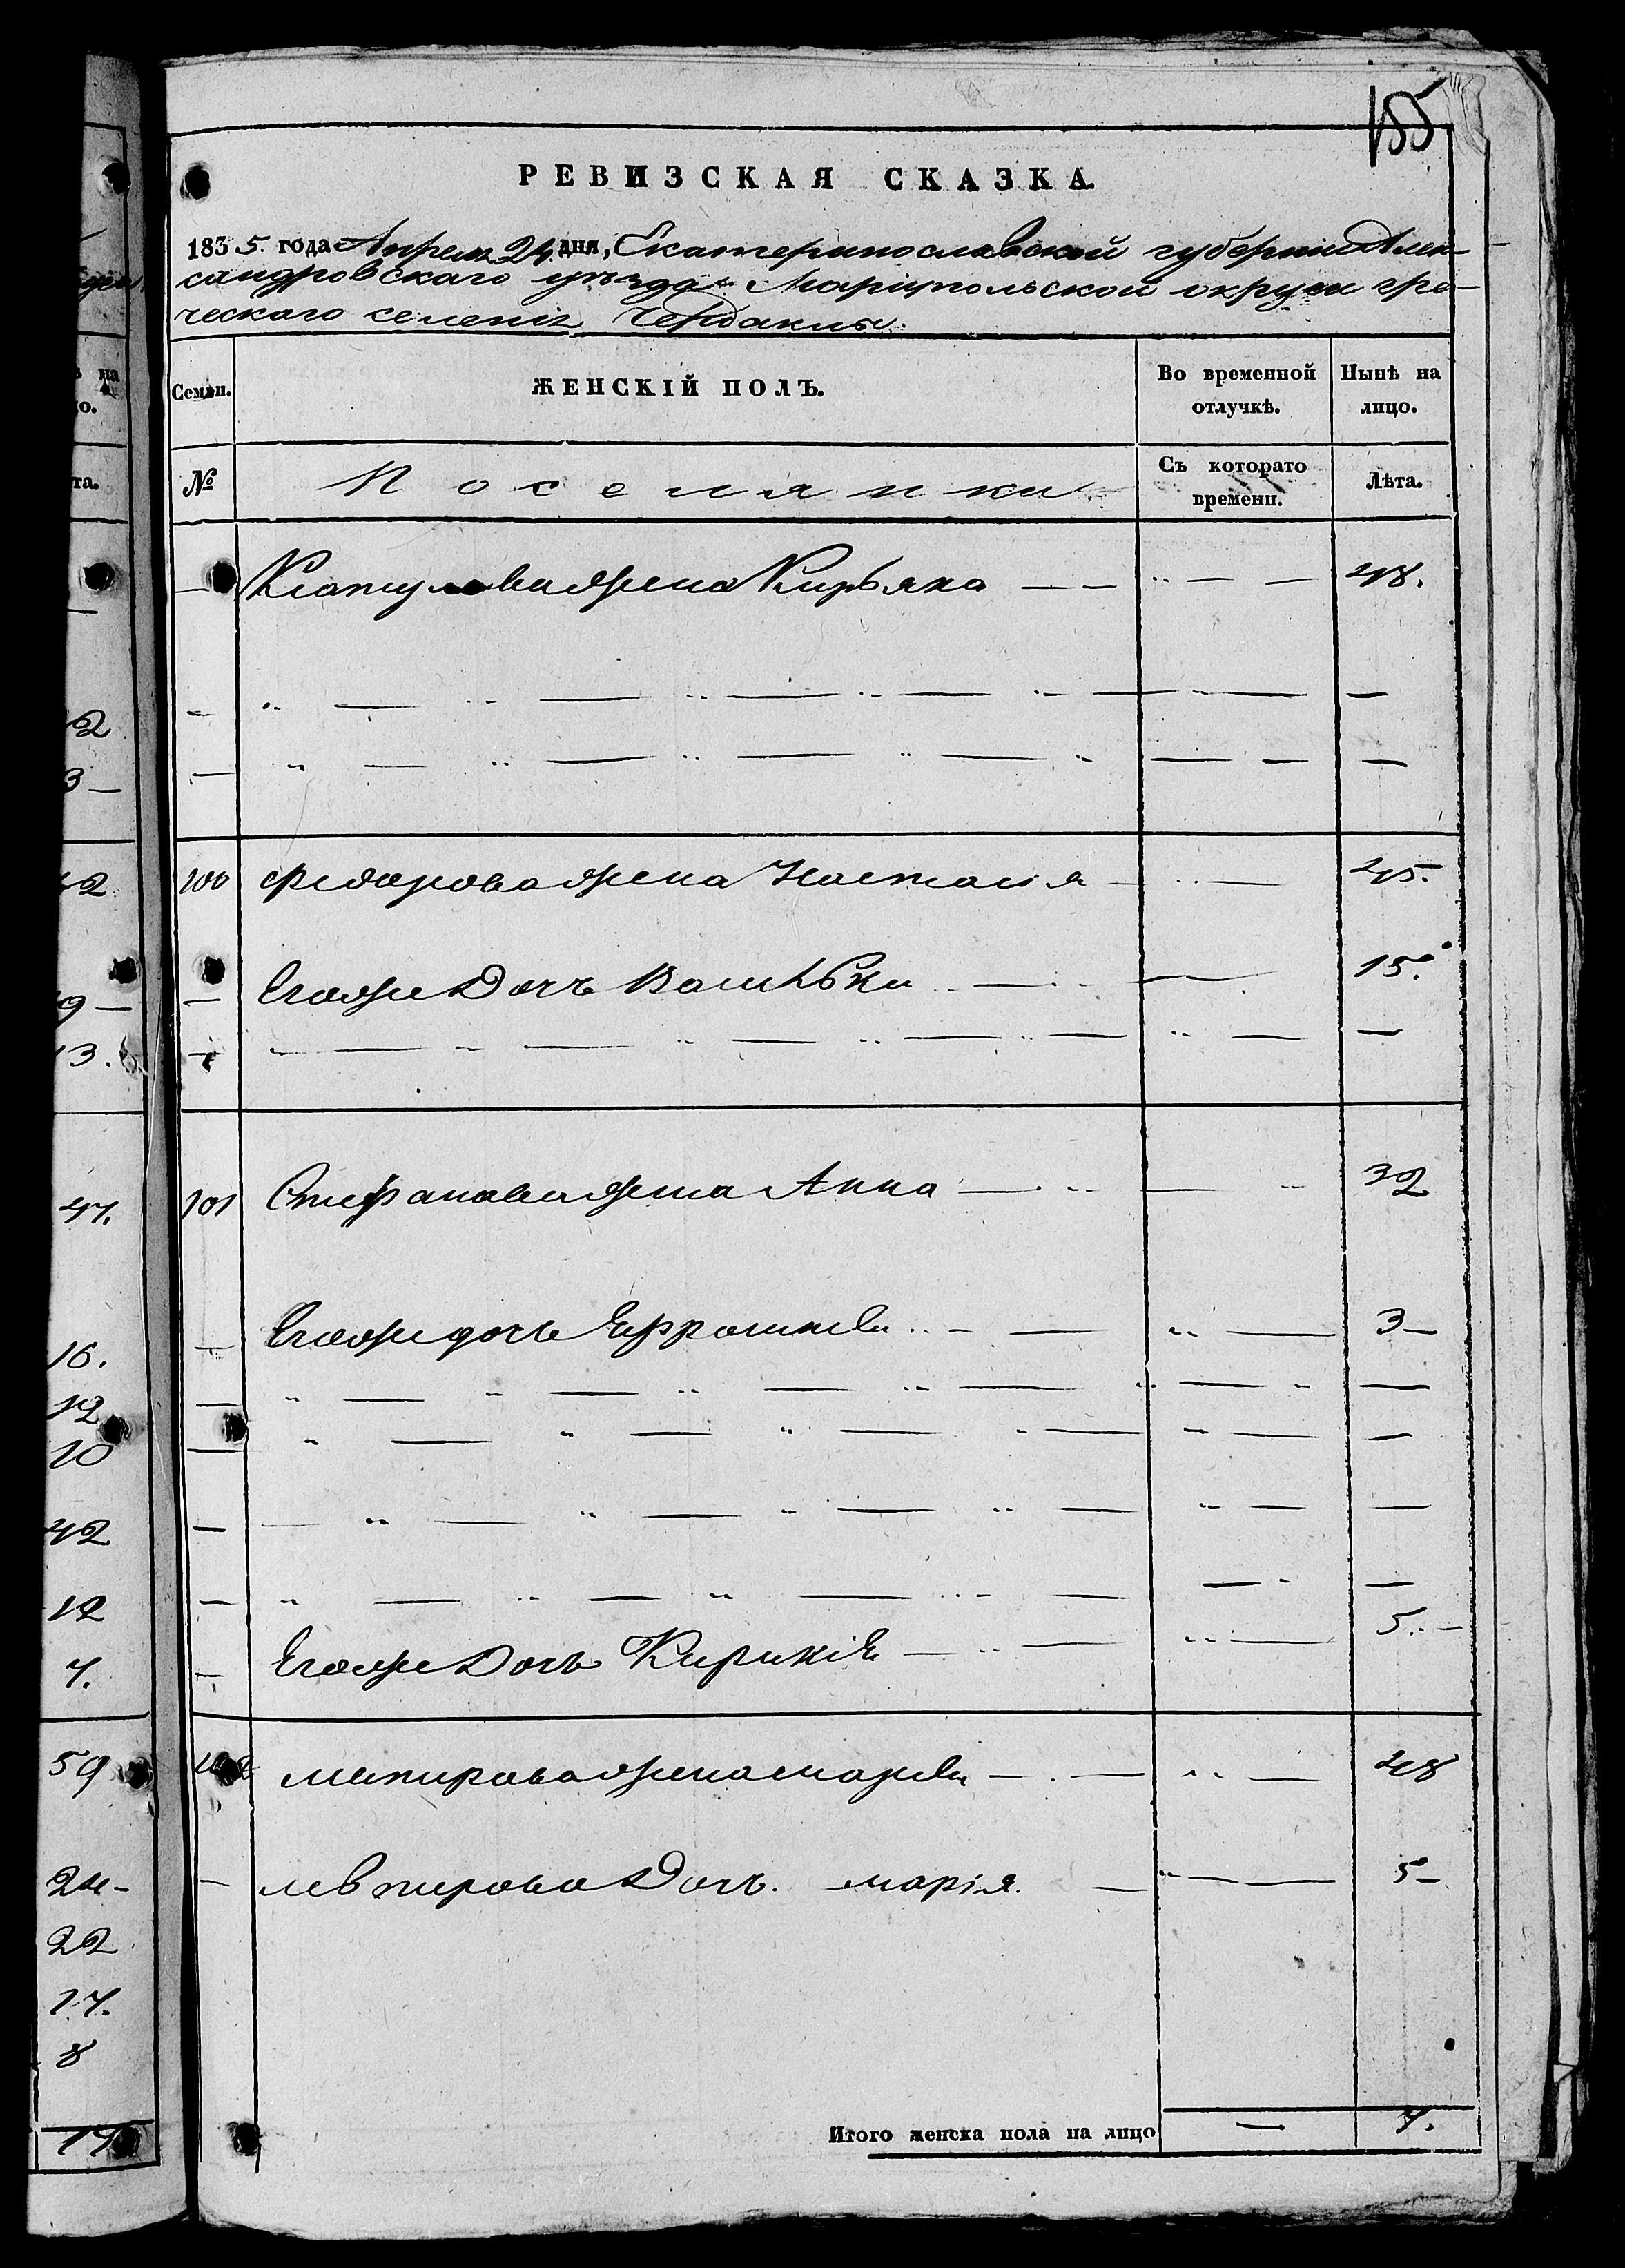 155
РЕВИЗСКАЯ СКАЗКА.
1835 года Апреля 24 дня, Екатеринославской губернии Алек-
сандровскаго уезда Маріупольской округи гре-
ческаго селенія Чердаклы
Семьи. ЖЕНСКІЙ ПОЛЪ. Во временной отлучкѣ. Нынѣ на лицо.
№ Поселянки Съ которато времени. Лѣта.
жена Кирьяка 48.
100 Федорова жена Настасія 45.
Егоже Дочь Васи 15.
101 Стефанова жена Анна 32
Егоже дочь 3
Егоже Дочь 5
102 жена 48
Дочь марія. 5
Итого женска пола на лицо — 7.
2
3
42
9
13.
47.
16.
12
10
42
12
7.
59
24
22
17.
8
17